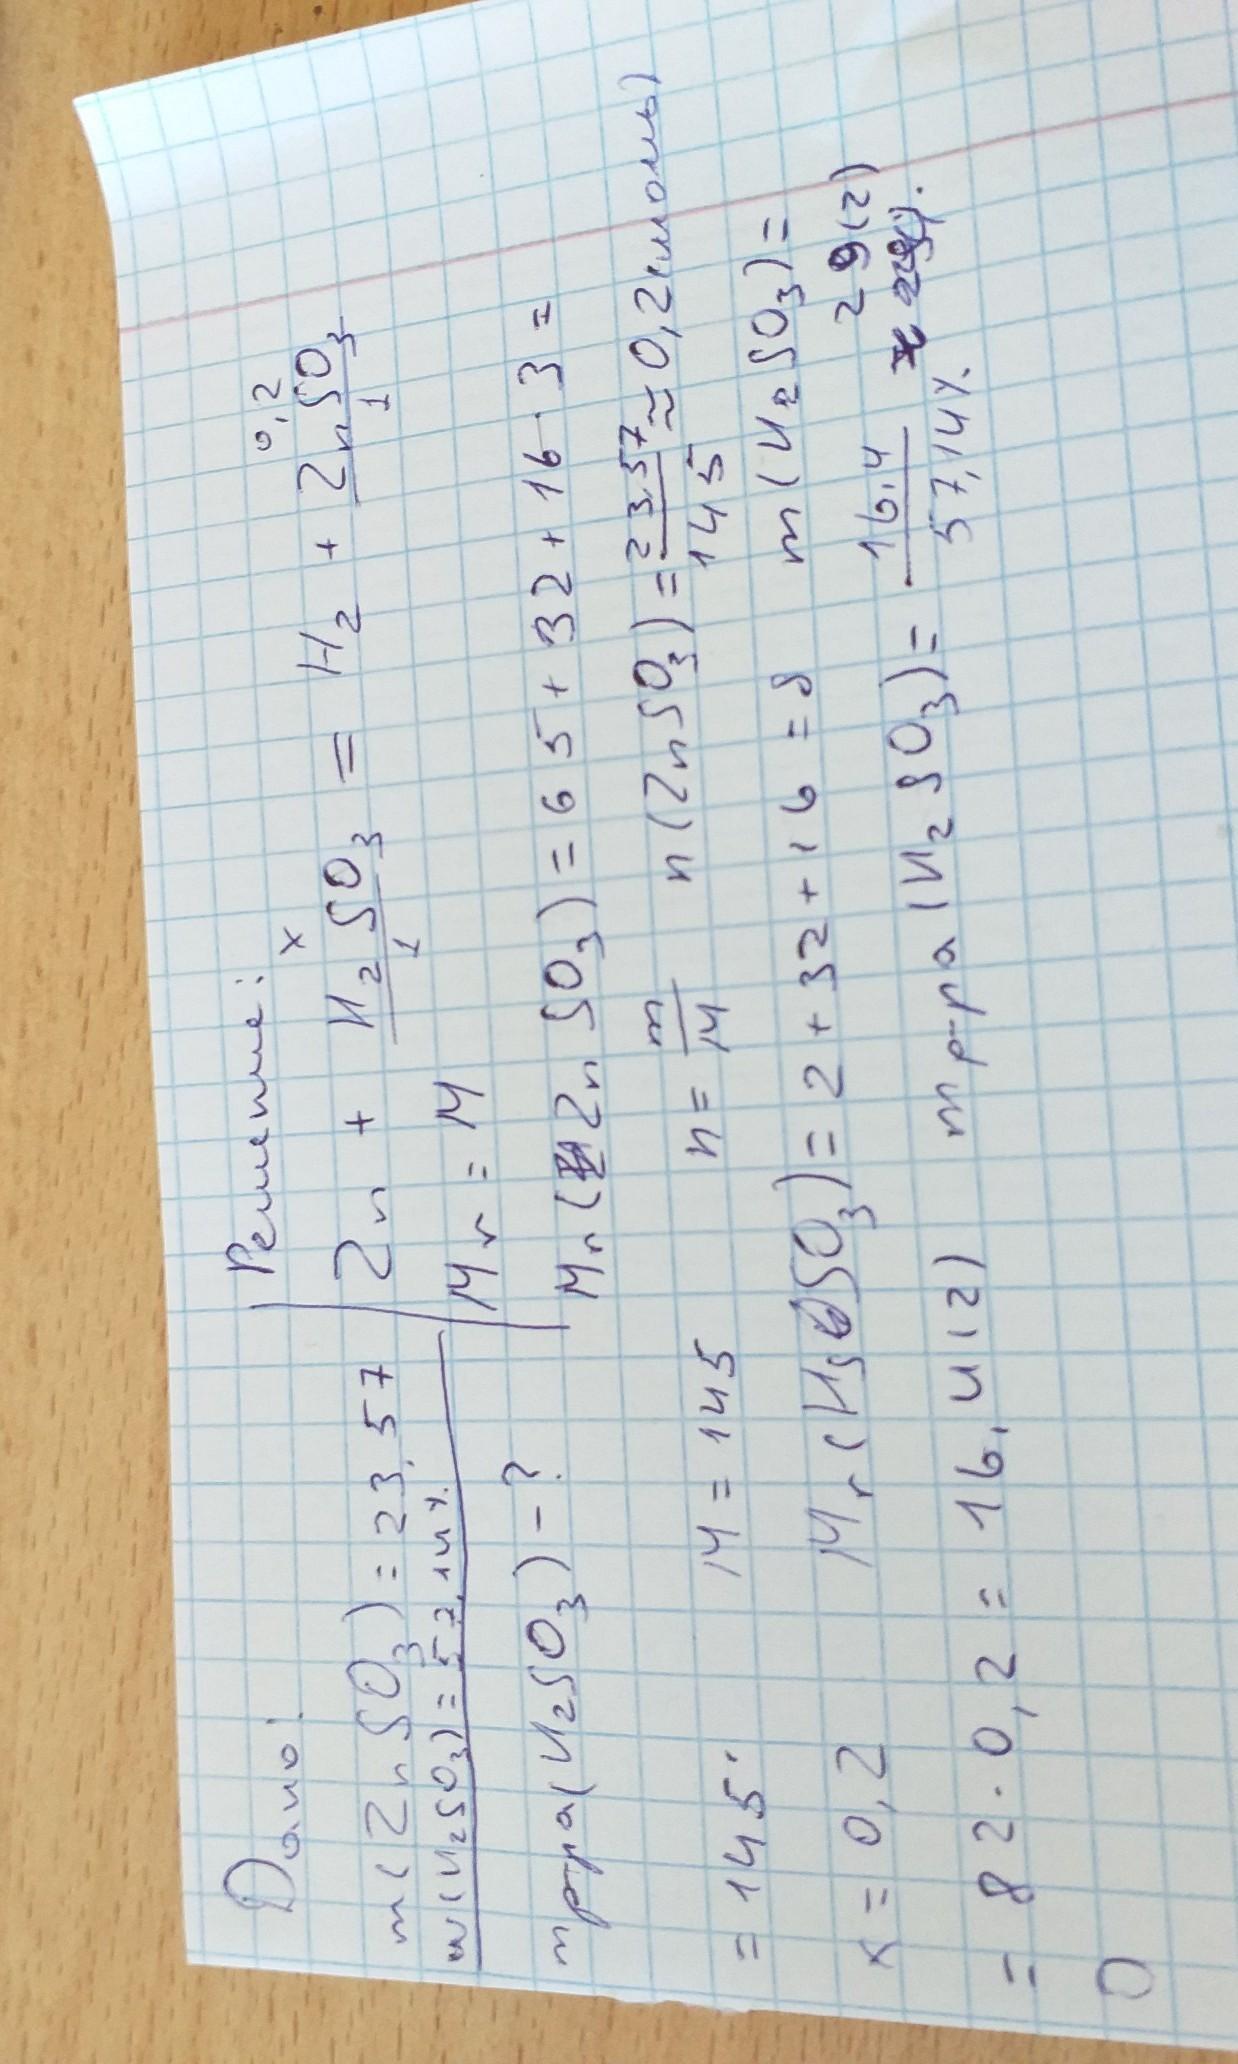 Дано:
m(ZnSO3) = 23,57
w(H2SO3) = 57,14%
mр-ра(H2SO3) - ?
Решение:
x 0,2
Zn + H2SO3 = H2 + ZnSO3
1 1
Mr = M
Mr(ZnSO3) = 65 + 32 + 16 · 3 =
= 145. M = 145 n = m/M n(ZnSO3) = 23,57/145 ≈ 0,2(моль)
x = 0,2 Mr(H2SO3) = 2 + 32 + 16 = 8 m(H2SO3) =
= 82 · 0,2 = 16,4(г) mр-ра(H2SO3) = 16,4/57,14% 29(г)
О